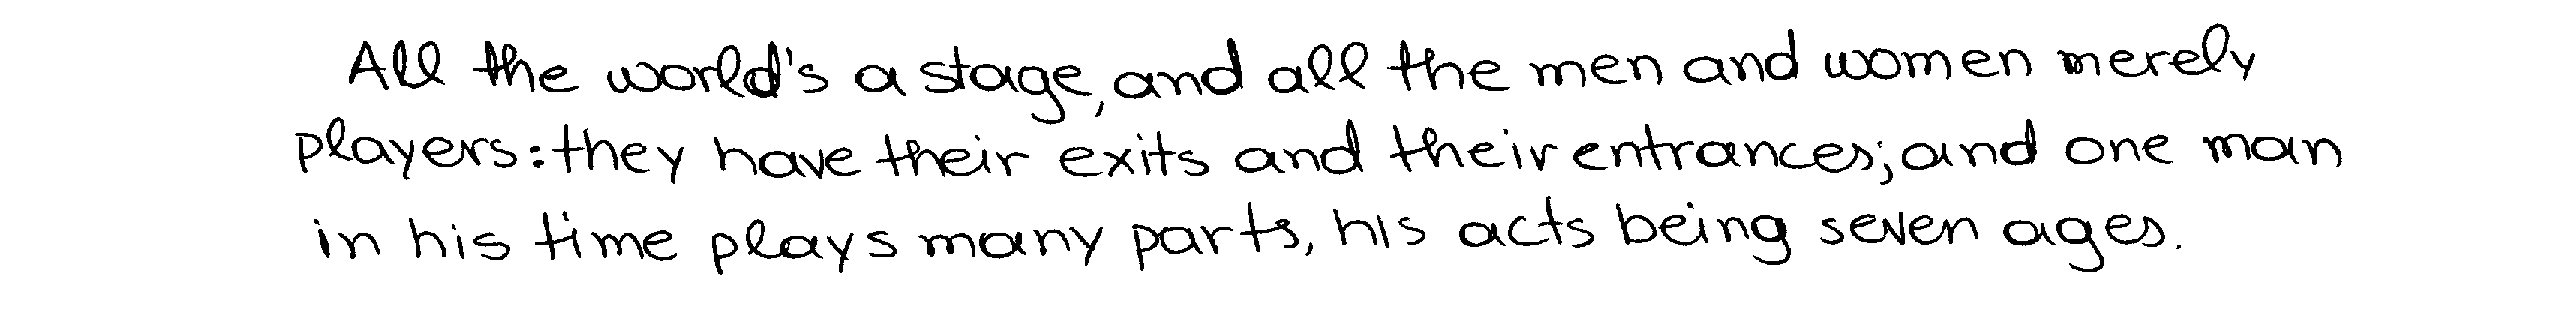 All the world's a stage, and all the men and women merely
players: they have their exits and their entrances; and one man
in his time plays many parts, his acts being seven ages.